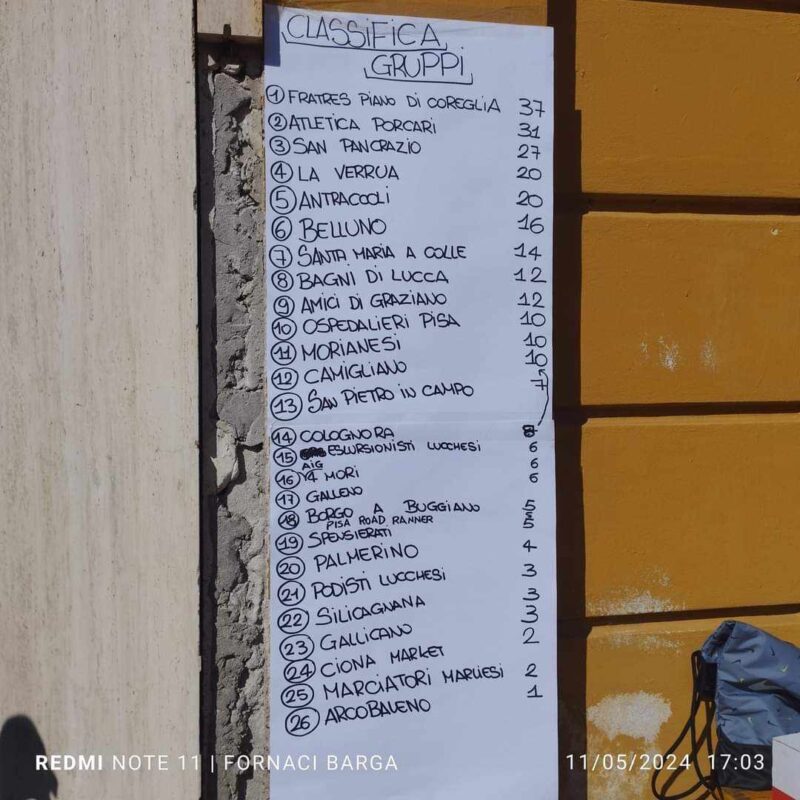 CLASSIFICA
GRUPPI
1 FRATRES PIANO DI COREGLIA 37
2 ATLETICA PORCARI 31
3 SAN PANCRAZIO 27
4 LA VERRUA 20
5 ANTRACCOLI 20
6 BELLUNO 16
7 SANTA MARIA A COLLE 14
8 BAGNI DI LUCCA 12
9 AMICI DI GRAZIANO 12
10 OSPEDALIERI PISA 10
11 MORIANESI 10
12 CAMIGLIANO 10
13 SAN PIETRO IN CAMPO 7
14 COLOGNORA
15 ESCURSIONISTI LUCCHESI 6
AIG
16 4 MORI 6
17 GALLENO 6
18 BORGO A BUGGIANO 5
PISA ROAD RANNER 5
19 SPENSIERATI 5
20 PALMERINO 4
21 PODISTI LUCCHESI 3
22 SILICAGNANA 3
23 GALLICANO 3
24 CIONA MARKET 2
25 MARCIATORI MARLIESI 2
26 ARCOBALENO 1
REDMI NOTE 11 | FORNACI BARGA 11/05/2024 17:03